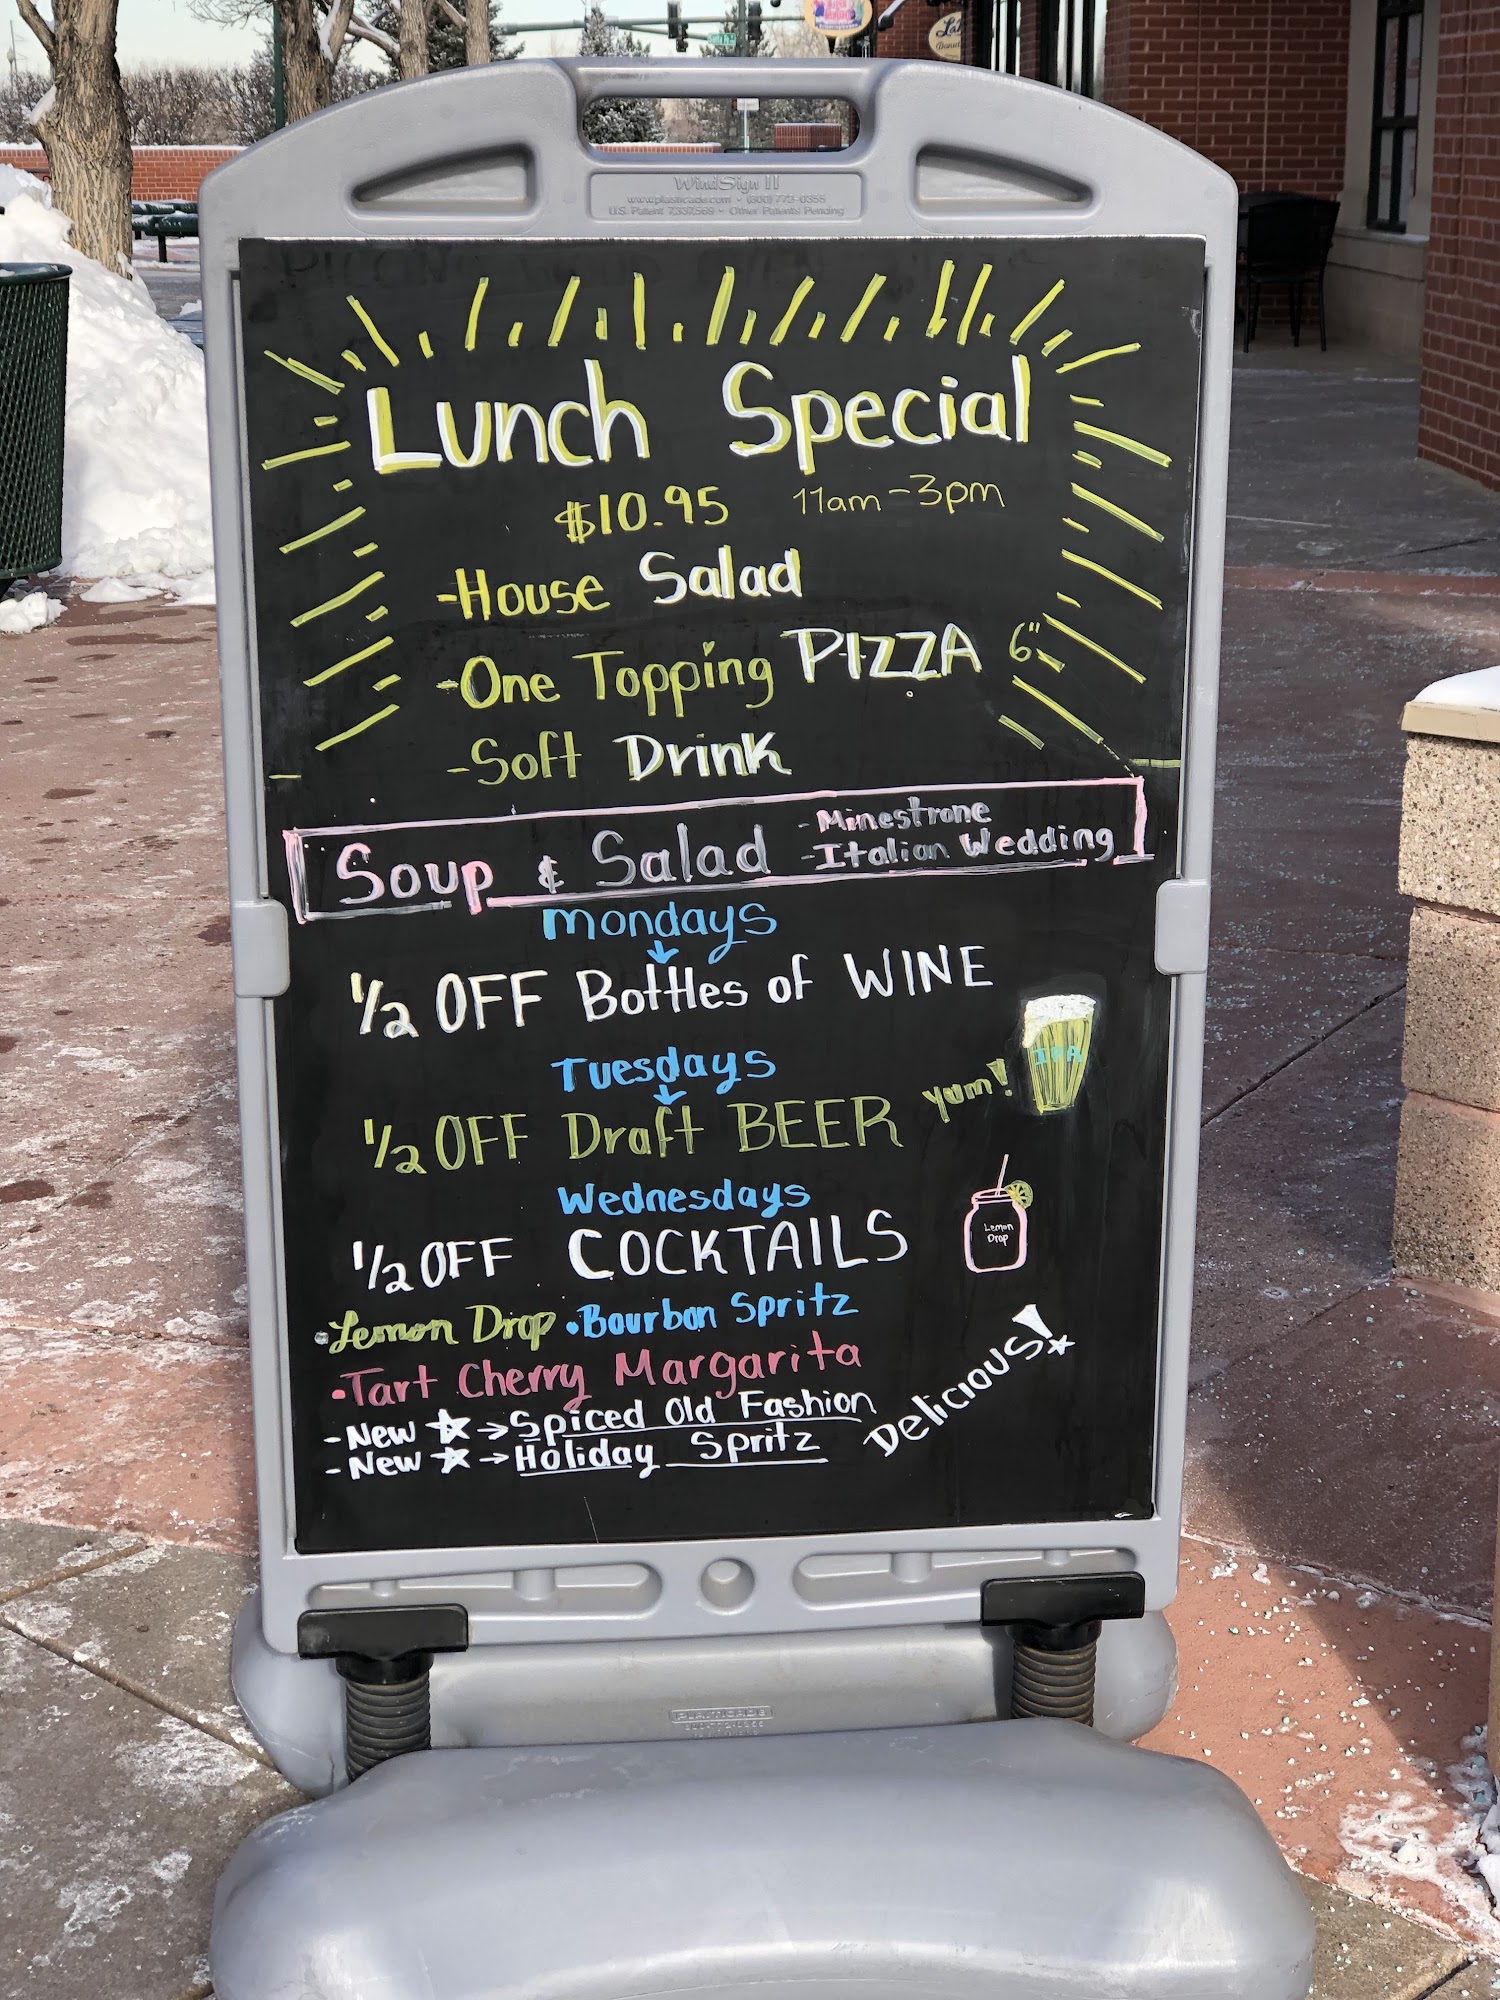 WindSign II
www.plasticade.com • (800) 772-0355
U.S. Patent 7,337,569 • Other Patents Pending
Lunch Special
$10.95 11am-3pm
-House Salad
-One Topping PIZZA 6"
-Soft Drink
Soup & Salad
- Minestrone
- Italian Wedding
Mondays
1/2 OFF Bottles of WINE
Tuesdays
1/2 OFF Draft BEER Yum!
IPA
Wednesdays
1/2 OFF COCKTAILS
Lemon
Drop
•Lemon Drop •Bourbon Spritz
•Tart Cherry Margarita
-New ☆→Spiced Old Fashion
-New ☆→Holiday Spritz
Delicious!
PLASTICADE